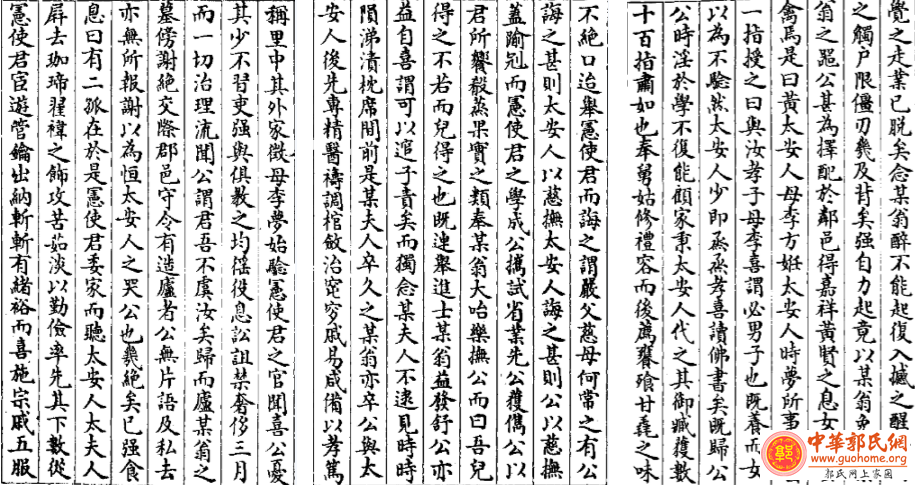 覺之走業已脫矣念某翁醉不能起復入撼之醒
之觸戶限僵刃幾及背矣强自力起竟以某翁免
翁之噐公甚為擇配於鄰邑得嘉祥黃賢之息女
禽焉是曰黃太安人母李方姙太安人時夢所事
一指授之曰與汝孝子母李喜謂必男子也既養而女
以為不驗然太安人少即烝烝孝喜讀佛書矣既歸公
公時淫於學不復能顧家秉太安人代之其御臧獲數
十百指肅如也奉舅姑修禮容而後薦饔飱甘毳之味
不絕口迨舉憲使君而誨之謂嚴父慈母何常之有公
誨之甚則太安人以慈撫太安人誨之甚則公以慈撫
蓋踰冠而憲使君之學成公攜試省業先公獲儁公以
君所饗殽蒸果實之類奉某翁大咍樂撫公而曰吾兒
得之不若而兒得之也既連舉進士某翁益發舒公亦
益自喜謂可以逭子責矣而獨念某夫人不逮見時時
隕涕漬枕席間前是某夫人卒久之某翁亦卒公與太
安人後先專精醫禱調棺斂治窀穸戚易咸備以孝篤
稱里中其外家徵母李夢始驗憲使君之官聞喜公憂
其少不習吏强與俱教之均徭役息訟詛禁奢侈三月
而一切治理流聞公謂君吾不虞汝矣歸而廬某翁之
墓傍謝絕交際郡邑守令有造廬者公無片語及私去
亦無所報謝以為恒太安人之哭公也幾絕矣已强食
息曰有二孤在於是憲使君委家而聽太安人太夫人
屏去珈珶翟褘之飾攻苦茹淡以勤儉率先其下數從
憲使君宦遊管鑰出納斬斬有緒裕而喜施宗戚五服
中華郭氏網
www.guohome.org
郭氏网上家園